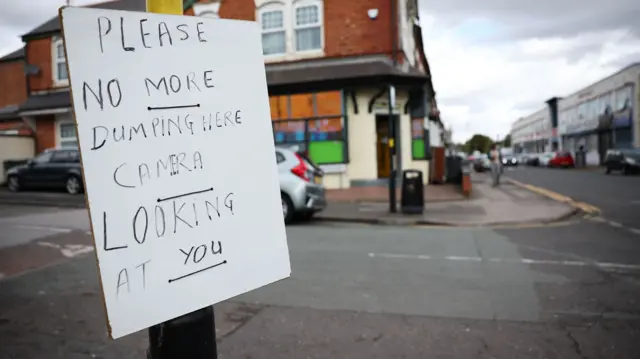 PLEASE
NO MORE
DUMPING HERE
CAMERA
LOOKING
AT YOU